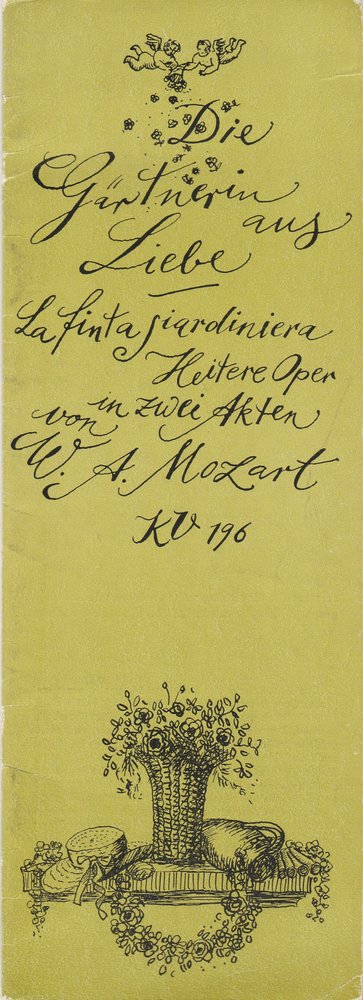 Die
Gärtnerin
aus
Liebe
La finta giardiniera
Heitere Oper
in zwei Akten
von
W. A. Mozart
KV 196